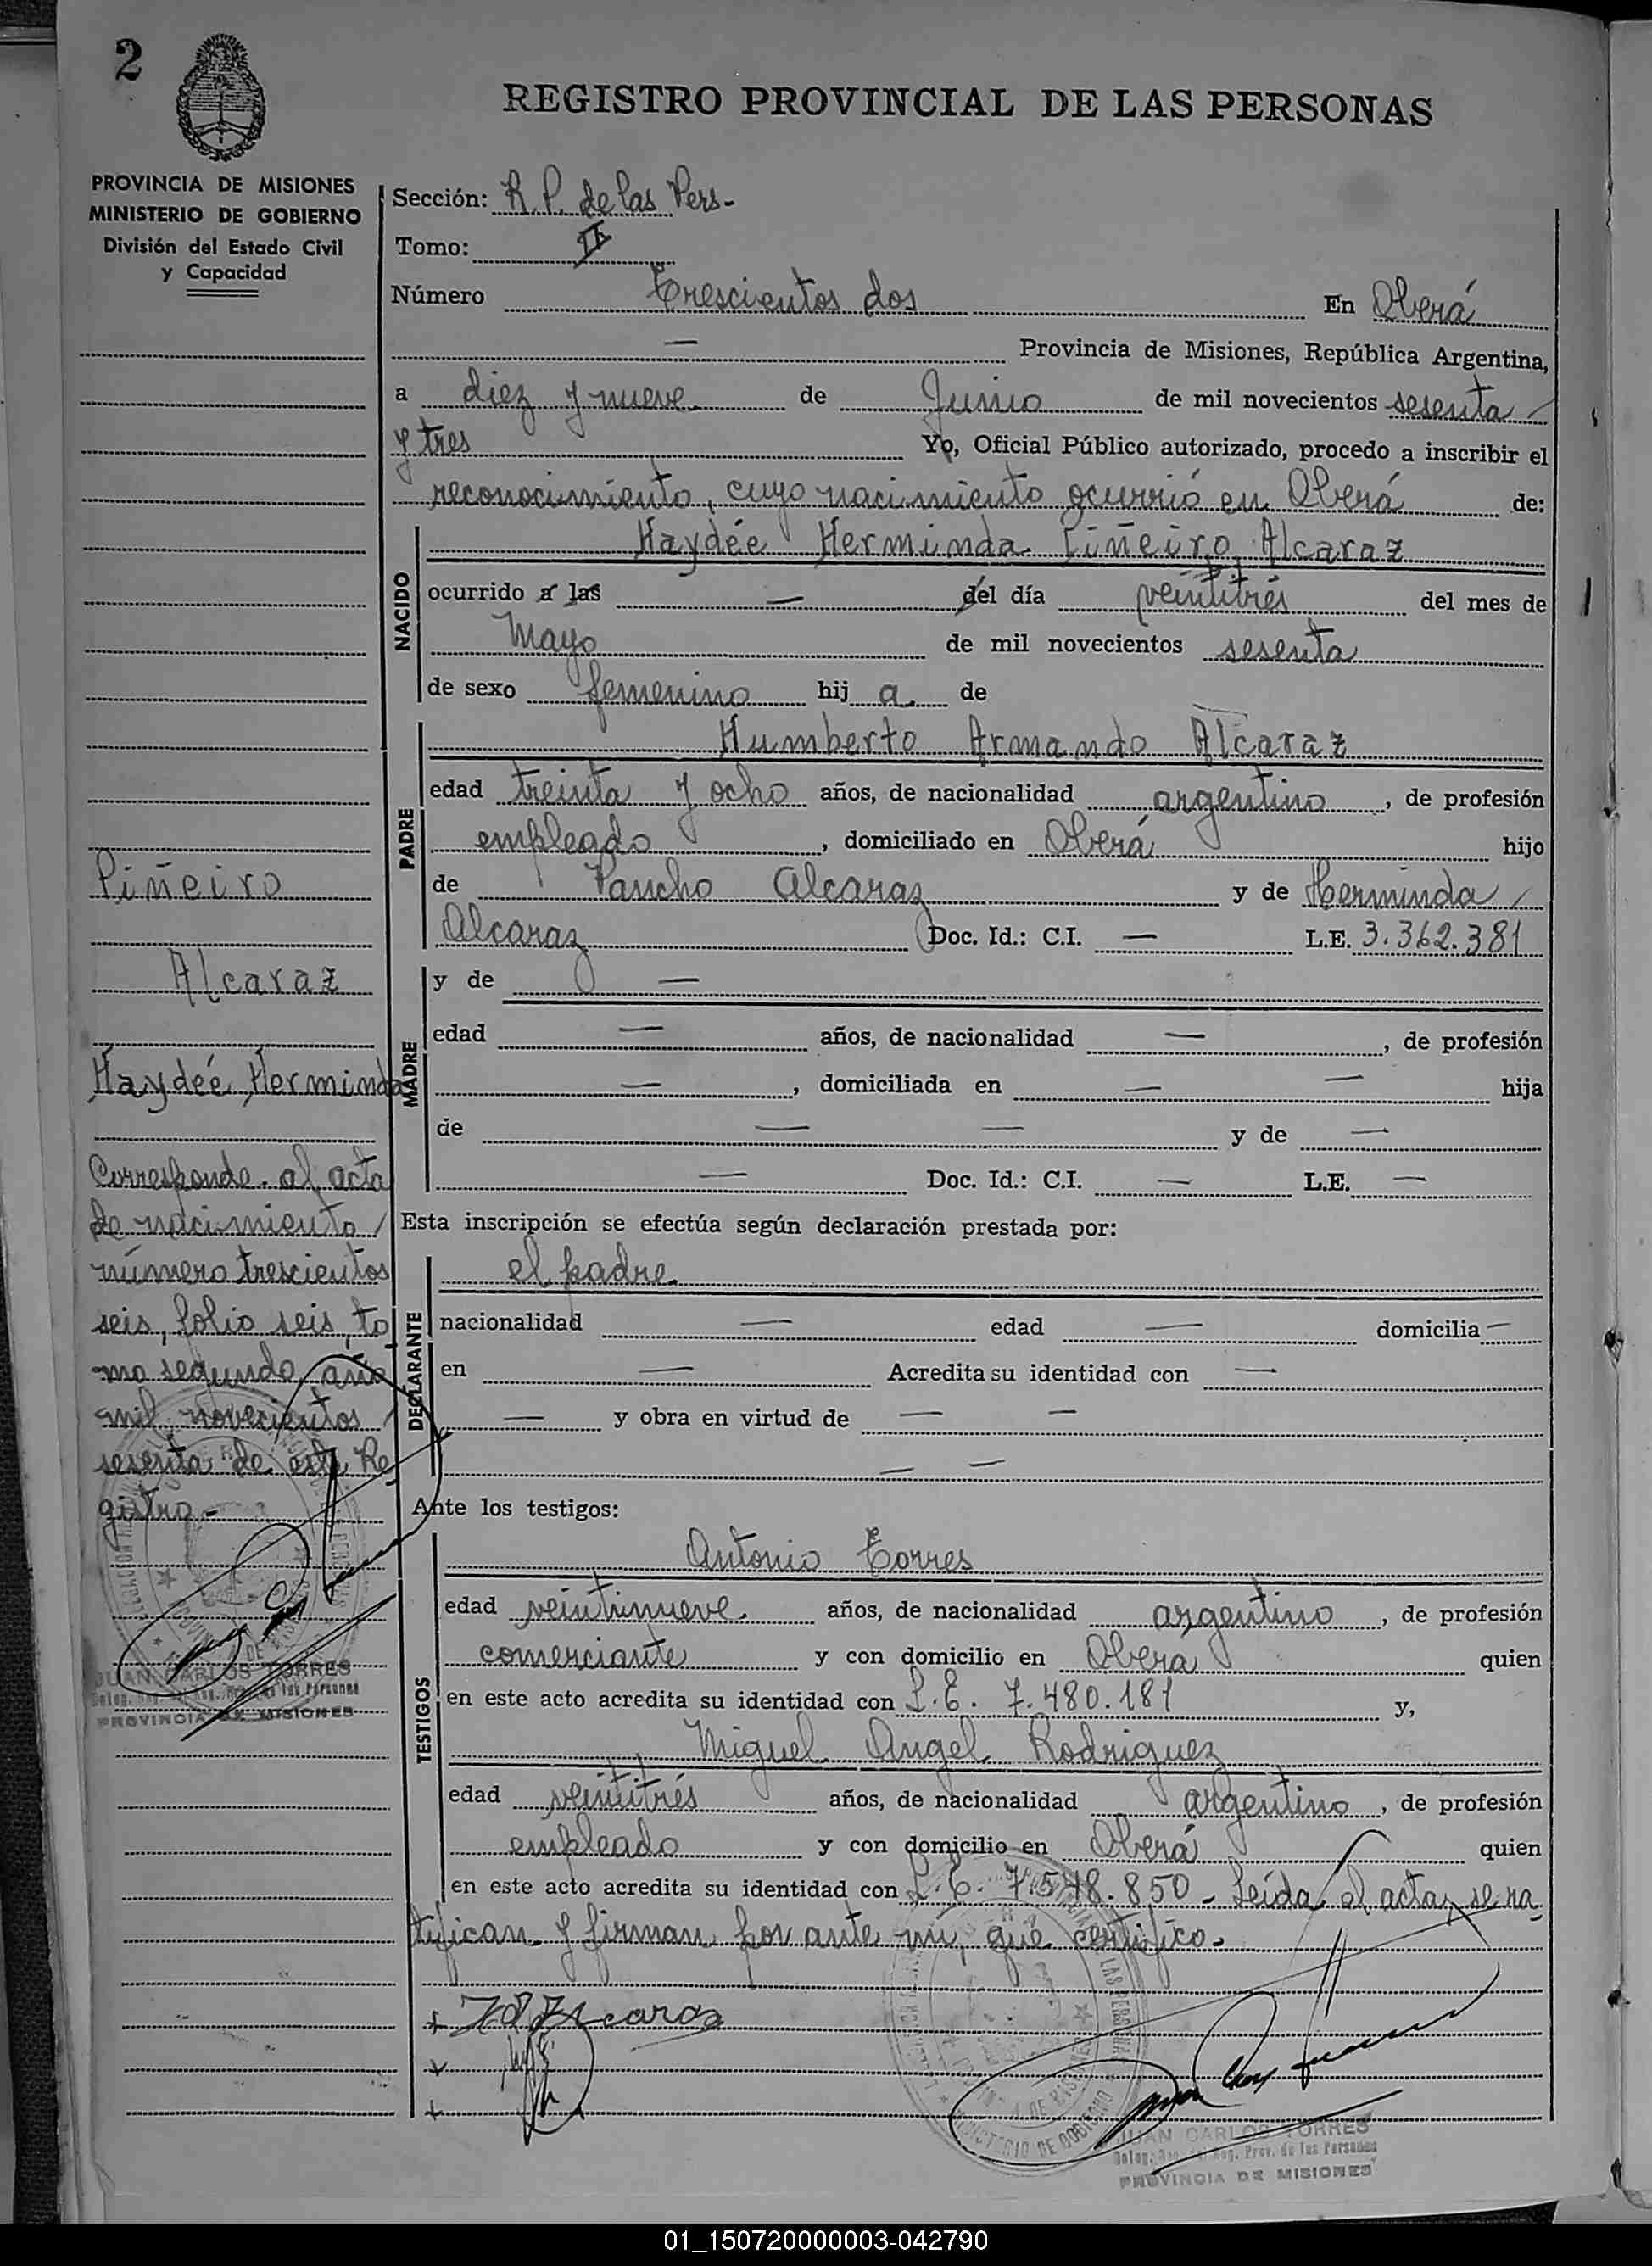 2
REGISTRO PROVINCIAL DE LAS PERSONAS
PROVINCIA DE MISIONES
MINISTERIO DE GOBIERNO
División del Estado Civil
y Capacidad
Sección: R. P. de las Pers-
Tomo: II
Número Trescientos dos En Oberá
— Provincia de Misiones, República Argentina,
a diez y nueve de Junio de mil novecientos sesenta
y tres Yo, Oficial Público autorizado, procedo a inscribir el
reconocimiento, cuyo nacimiento ocurrió en Oberá de:
NACIDO
Haydée Herminda Piñeiro Alcaraz
ocurrido a las — del día veintitrés del mes de
Mayo de mil novecientos sesenta
de sexo femenino hij a de
PADRE
Humberto Armando Alcaraz
edad treinta y ocho años, de nacionalidad argentino, de profesión
empleado, domiciliado en Oberá hijo
de Pancho Alcaraz y de Herminda
Alcaraz Doc. Id.: C.I. — L.E. 3.362.381
MADRE
y de —
edad — años, de nacionalidad —, de profesión
—, domiciliada en — — hija
de — — y de —
— Doc. Id.: C.I. — L.E. —
Esta inscripción se efectúa según declaración prestada por:
DECLARANTE
el padre
nacionalidad — edad — domicilia —
en — Acredita su identidad con —
— y obra en virtud de — —
— —
Ante los testigos:
TESTIGOS
Antonio Torres
edad veintinueve años, de nacionalidad argentino, de profesión
comerciante y con domicilio en Oberá quien
en este acto acredita su identidad con L.E. 7.480.181 y,
Miguel Angel Rodriguez
edad veintitrés años, de nacionalidad argentino, de profesión
empleado y con domicilio en Oberá quien
en este acto acredita su identidad con L.E. 7.548.850 - Leída el acta, se ra
tifican y firman por ante mí, que certifico.
Piñeiro
Alcaraz
Haydée Herminda
Corresponde al acta
de nacimiento
número trescientos
seis, folio seis, to
mo segundo, año
mil novecientos
sesenta de este Re
gistro -
JUAN CARLOS TORRES
PROVINCIA DE MISIONES
JUAN CARLOS TORRES
Reg. Prov. de las Personas
PROVINCIA DE MISIONES
01_150720000003-042790